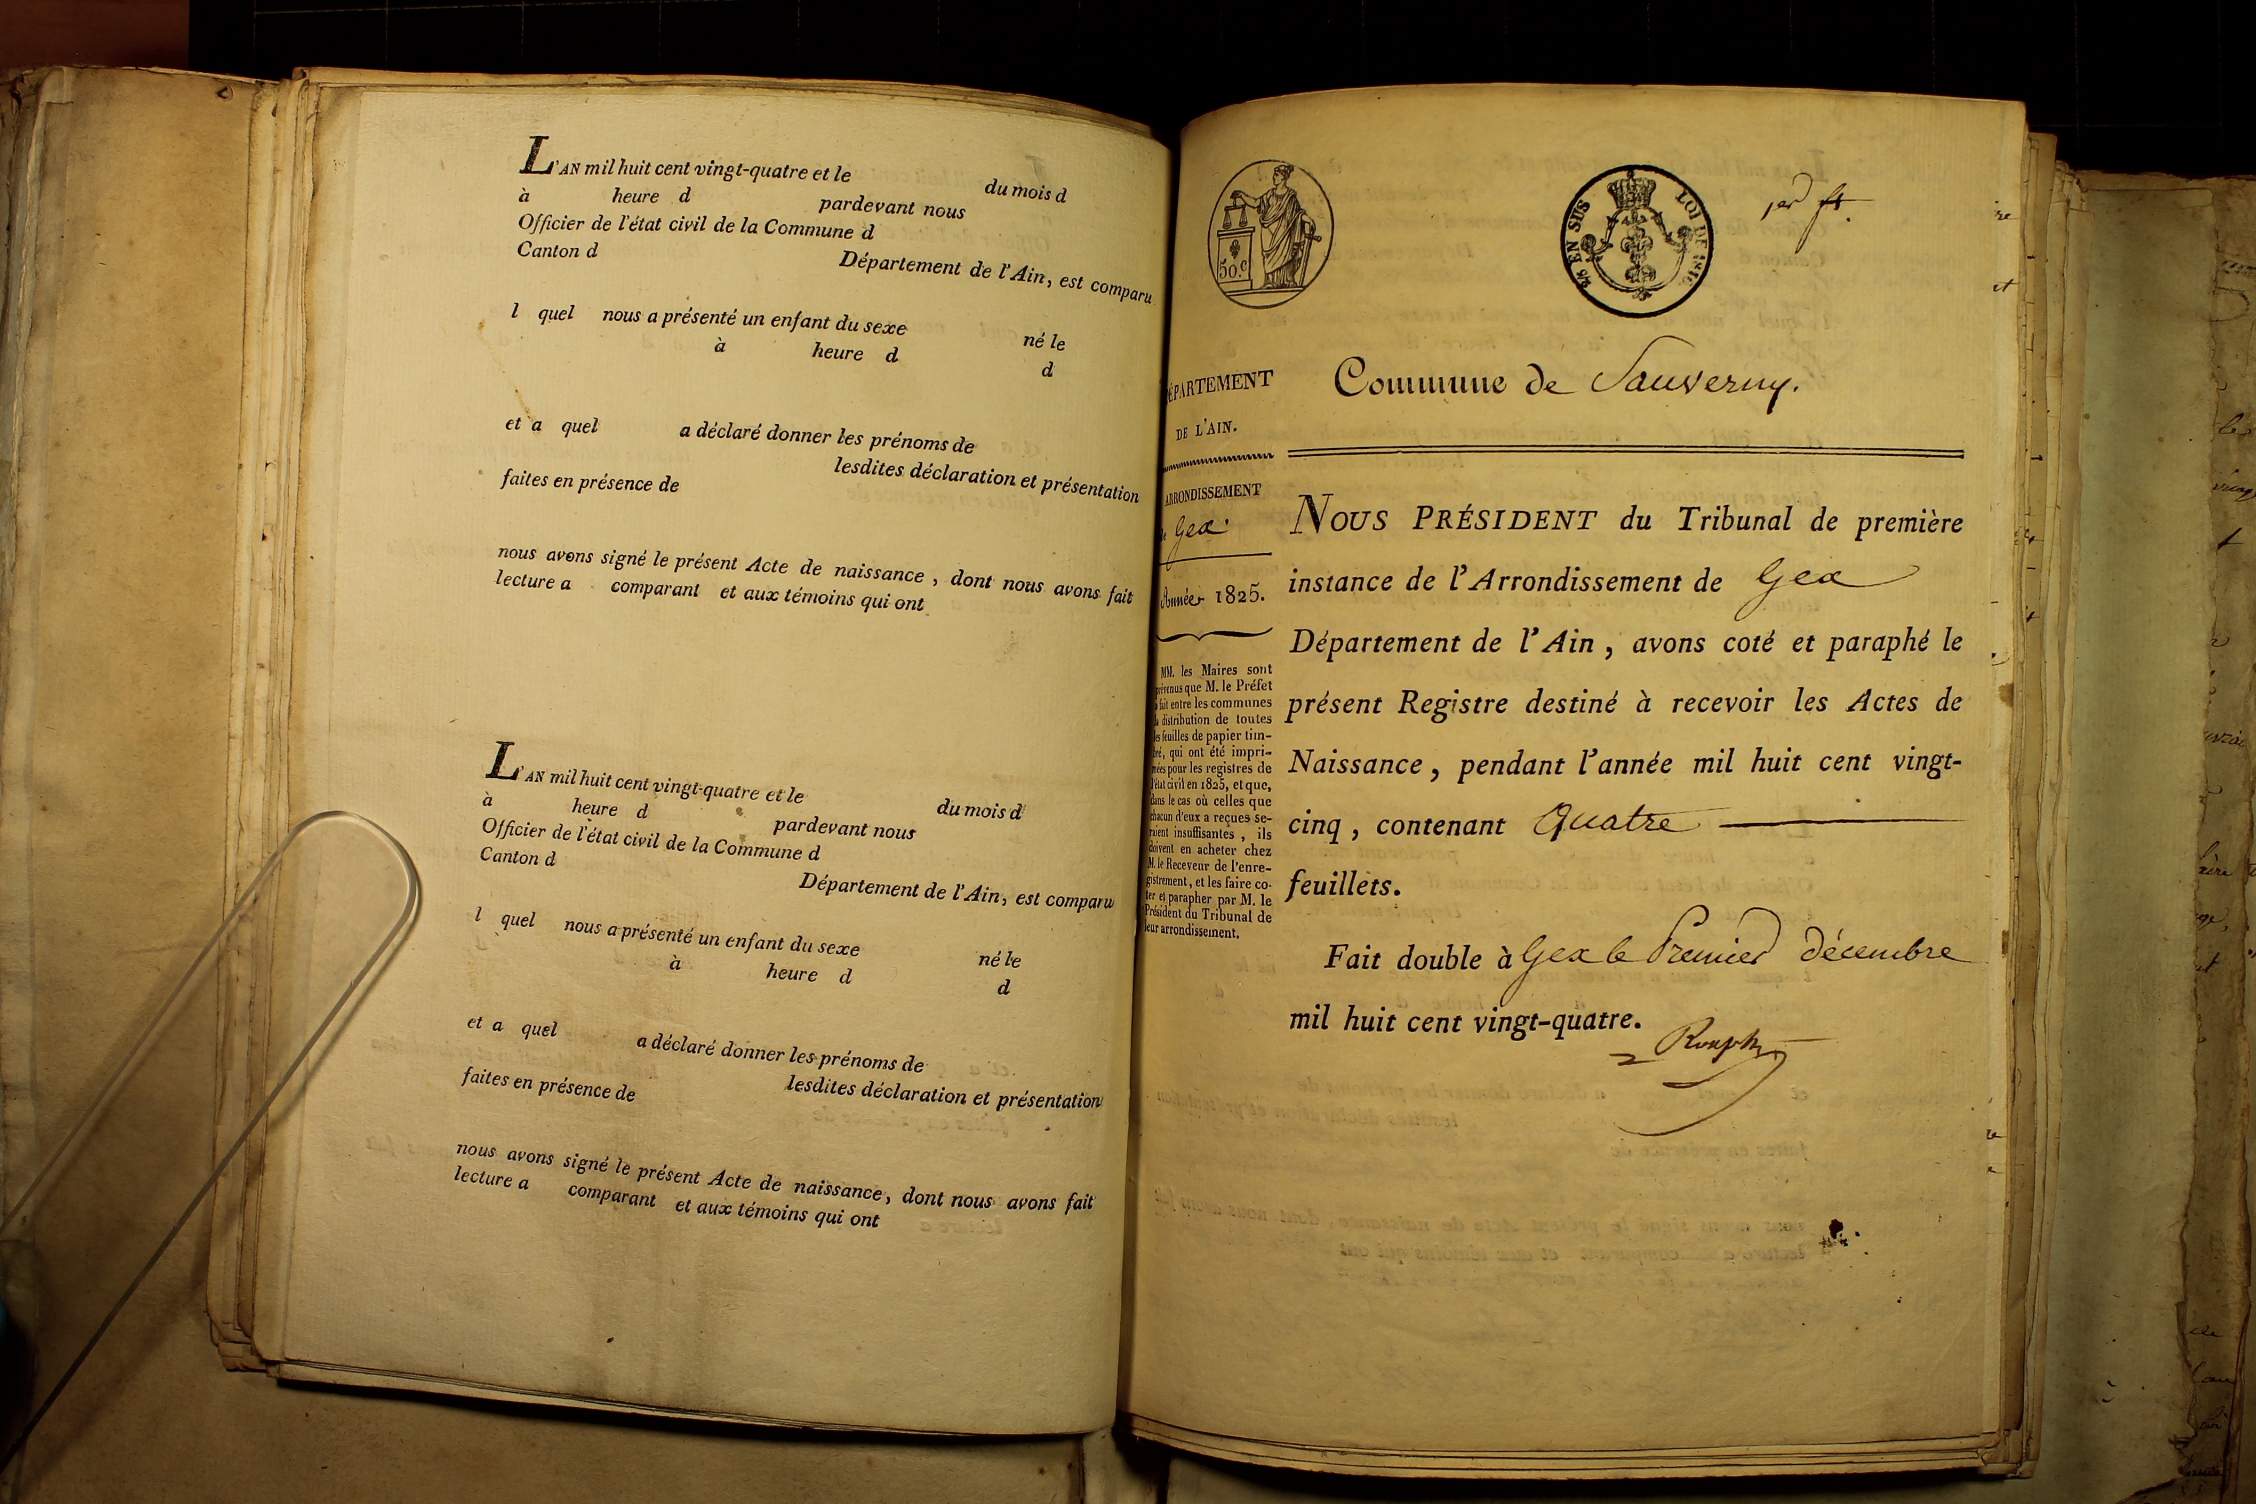 L'AN mil huit cent vingt-quatre et le du mois d
à heure d pardevant nous
Officier de l'état civil de la Commune d
Canton d Département de l'Ain, est comparu
l quel nous a présenté un enfant du sexe né le
à heure d d
et a quel a déclaré donner les prénoms de
lesdites déclaration et présentation
faites en présence de
nous avons signé le présent Acte de naissance, dont nous avons fait
lecture a comparant et aux témoins qui ont
L'AN mil huit cent vingt-quatre et le du mois d
à heure d pardevant nous
Officier de l'état civil de la Commune d
Canton d Département de l'Ain, est comparu
l quel nous a présenté un enfant du sexe né le
à heure d d
et a quel a déclaré donner les prénoms de
lesdites déclaration et présentation
faites en présence de
nous avons signé le présent Acte de naissance, dont nous avons fait
lecture a comparant et aux témoins qui ont
50.c
EN SUS LOI DE 1816
Commune de Sauverny.
DÉPARTEMENT
DE L'AIN.
ARRONDISSEMENT
de Gex.
Année 1825.
MM. les Maires sont
prévenus que M. le Préfet
a fait entre les communes
la distribution de toutes
les feuilles de papier tim-
bré, qui ont été impri-
mées pour les registres de
l'état civil en 1825, et que,
dans le cas où celles que
chacun d'eux a reçues se-
raient insuffisantes, ils
doivent en acheter chez
M. le Receveur de l'enre-
gistrement, et les faire co-
ter et parapher par M. le
Président du Tribunal de
leur arrondissement.
NOUS PRÉSIDENT du Tribunal de première
instance de l'Arrondissement de Gex
Département de l'Ain, avons coté et paraphé le
présent Registre destiné à recevoir les Actes de
Naissance, pendant l'année mil huit cent vingt-
cinq, contenant Quatre
feuillets.
Fait double à Gex le Premier décembre
mil huit cent vingt-quatre.